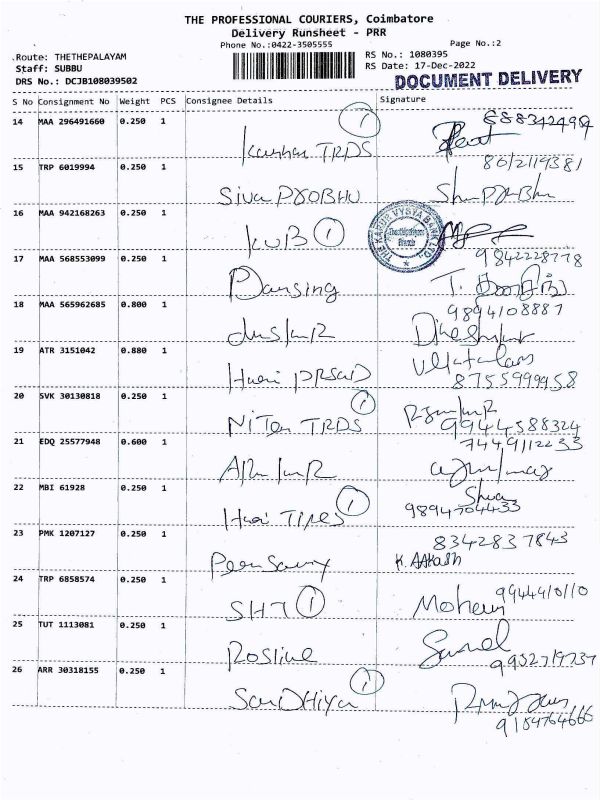 THE PROFESSIONAL COURIERS, Coimbatore
Delivery Runsheet - PRR
Phone No.:0422-3505555
Page No.:2
Route: THETHEPALAYAM
RS No.: 1080395
Staff: SUBBU
RS Date: 17-Dec-2022
DRS No.: DCJB108039502
DOCUMENT DELIVERY
S No Consignment No Weight PCS Consignee Details Signature
14 MAA 296491660 0.250 1
TRDS 1
15 TRP 6019994 0.250 1
Siva
16 MAA 942168263 0.250 1
KVB 1
THE KARUR VYSYA BANK LTD.
17 MAA 568553099 0.250 1
9842228778
18 MAA 565962685 0.800 1
9894108887
19 ATR 3151042 0.880 1
Hari
8755999958
20 SVK 30130818 0.250 1
NiTen TRDS 1
9944588324
21 EDQ 25577948 0.600 1
7449112233
22 MBI 61928 0.250 1
Hari 1
Shiva
9894704433
23 PMK 1207127 0.250 1
8342837843
K. AAKash
24 TRP 6858574 0.250 1
SHT 1
9944910110
25 TUT 1113081 0.250 1
Rosline
26 ARR 30318155 0.250 1
SanDHiya 1
9154764666